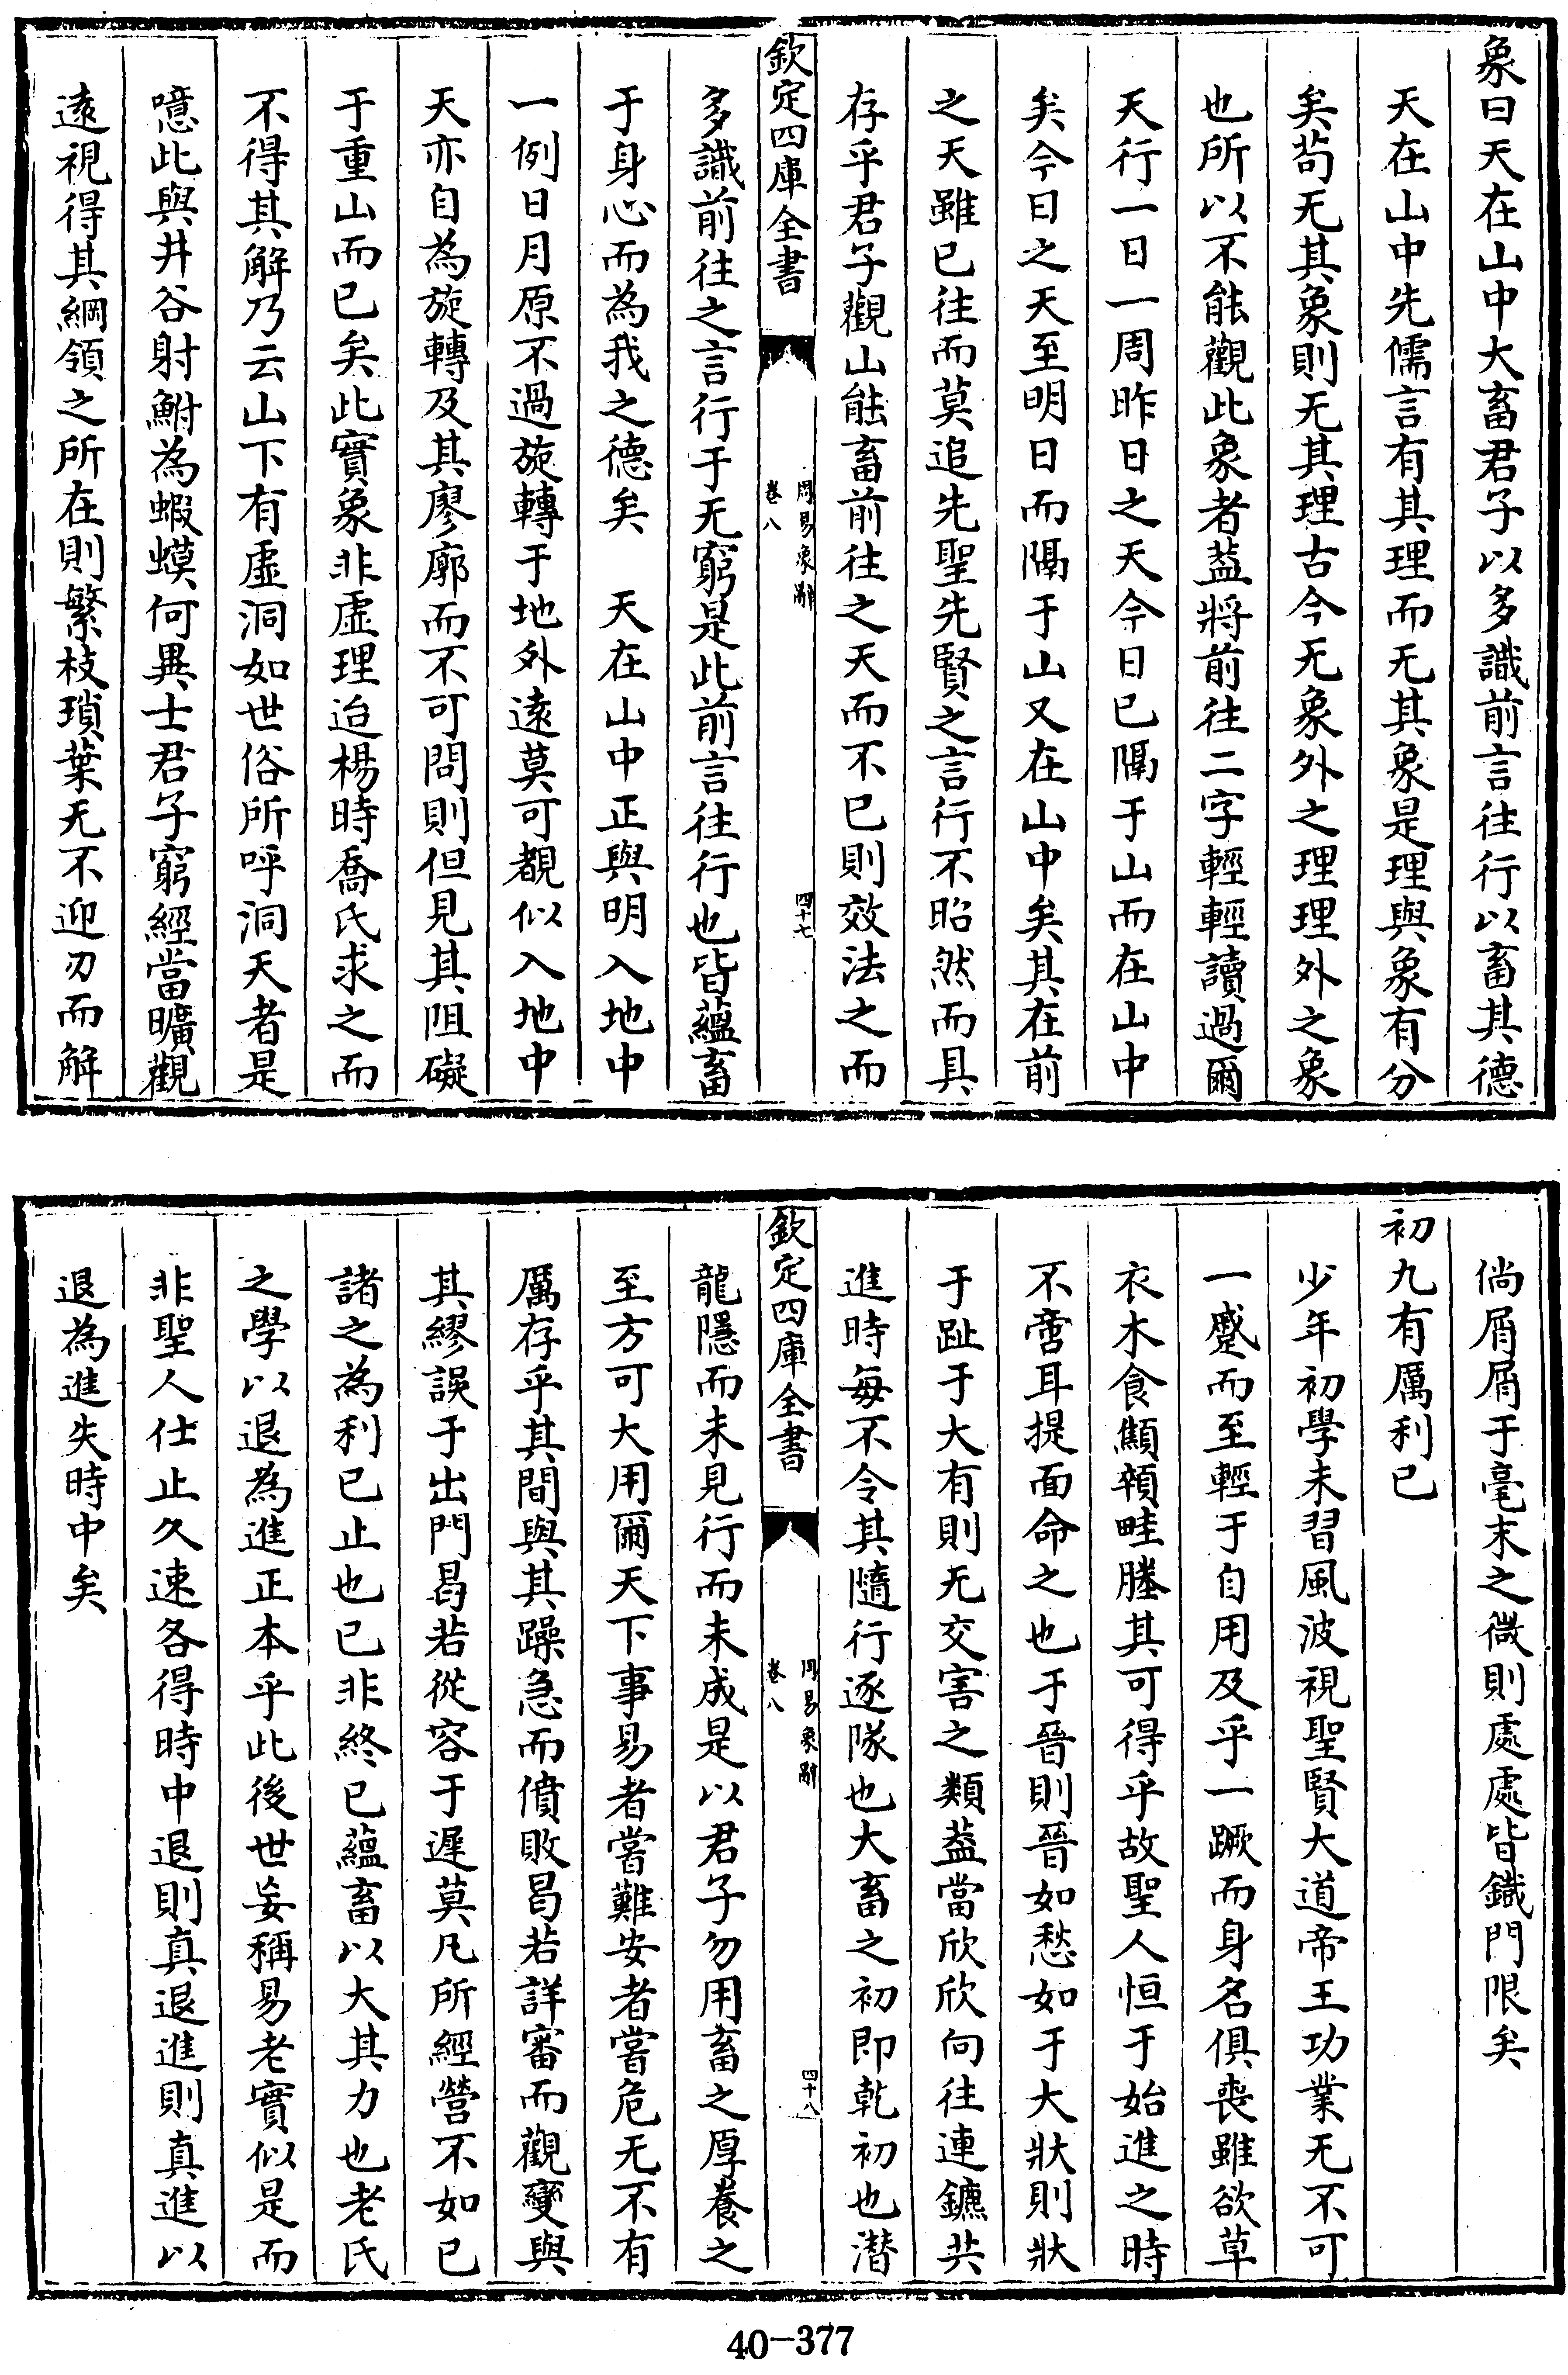 象曰天在山中大畜君子以多識前言往行以畜其德
天在山中先儒言有其理而无其象是理與象有分
矣茍无其象則无其理古今无象外之理理外之象
也所以不能觀此象者葢將前往二字輕輕讀過爾
天行一日一周昨日之天今日已隔于山而在山中
矣今日之天至明日而隔于山又在山中矣其在前
之天雖已往而莫追先聖先賢之言行不昭然而具
存乎君子觀山能畜前往之天而不已則效法之而
欽定四庫全書
周易象辭
卷八
四十七
多識前往之言行于无窮是此前言往行也皆蘊畜
于身心而為我之德矣　天在山中正與明入地中
一例日月原不過旋轉于地外遠莫可覩似入地中
天亦自為旋轉及其廖廓而不可問則但見其阻礙
于重山而已矣此實象非虛理迨楊時喬氏求之而
不得其解乃云山下有虛洞如世俗所呼洞天者是
噫此與井谷射鮒為蝦蟆何異士君子窮經當曠觀
遠視得其綱領之所在則繁枝瑣葉无不迎刃而解
倘屑屑于毫末之微則處處皆鐵門限矣
初九有厲利已
少年初學未習風波視聖賢大道帝王功業无不可
一蹙而至輕于自用及乎一蹶而身名俱喪雖欲草
衣木食顯頛畦塍其可得乎故聖人恒于始進之時
不啻耳提面命之也于晉則晉如愁如于大狀則狀
于趾于大有則无交害之類葢當欣欣向往連鑣共
進時每不令其隨行逐隊也大畜之初即乾初也潛
欽定四庫全書
周易象辭
卷八
四十八
龍隱而未見行而未成是以君子勿用畜之厚養之
至方可大用爾天下事易者嘗難安者嘗危无不有
厲存乎其間與其躁急而僨敗曷若詳審而觀變與
其繆誤于出門曷若從容于遲莫凡所經營不如已
諸之為利已止也已非終已蘊畜以大其力也老氏
之學以退為進正本乎此後世妄稱易老實似是而
非聖人仕止久速各得時中退則真退進則真進以
退為進失時中矣
40-377